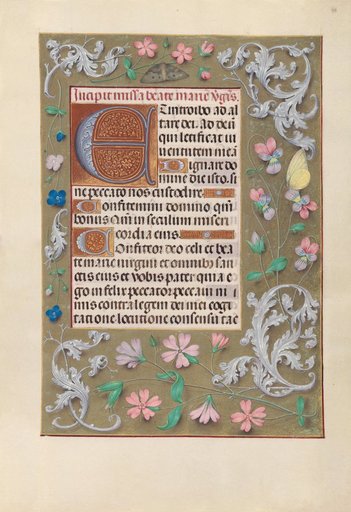 Incipit missa beate marie v̄gis.
Et introibo ad al
tare dei. Ad deū
qui letificat iu
uentutem meā
Dignare do
mine die isto si
ne peccato nos custodire.
Confitemini domino qm̄
bonus Qm̄ in seculum miseri
cordia eius.
Confiteor deo celi et bea
te marie virgini et omnibus san
ctis eius et vobis pater quia e
go infelix peccator peccaui ni
mis contra legem dei mei cogi
tatione locutione consensu tac